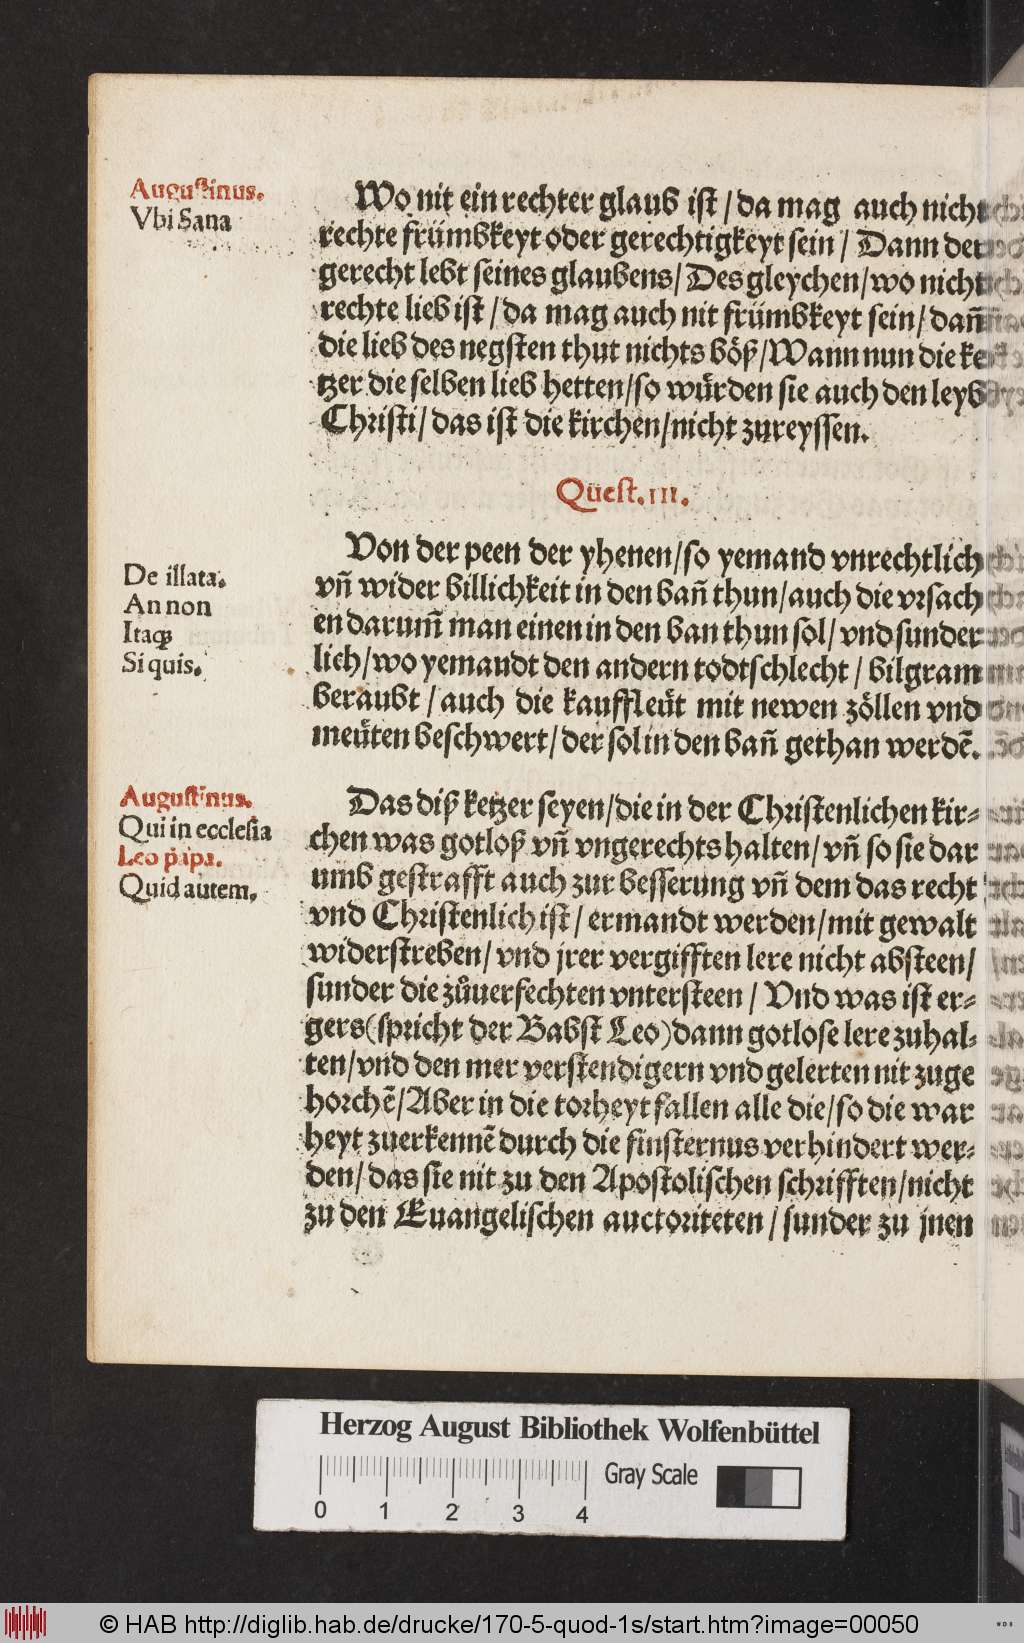 Augustinus.
Vbi Sana
Wo nit ein rechter glaub ist / da mag auch nicht
rechte frümbkeyt oder gerechtigkeyt sein / Dann der
gerecht lebt seines glaubens / Des gleychen / wo nicht
rechte lieb ist / da mag auch nit frümbkeyt sein / dañ
die lieb des negsten thut nichts böß / Wann nun die ke
tzer die selben lieb hetten / so würden sie auch den leyb
Christi / das ist die kirchen / nicht zureyssen.
Quest. III.
De illata.
An non
Itaqȝ
Si quis.
Von der peen der yhenen / so yemand vnrechtlich
vñ wider billichkeit in den bañ thun / auch die vrsach
en darum̃ man einen in den ban thun sol / vnd sunder
lich / wo yemandt den andern todtschlecht / bilgram
beraubt / auch die kauffleüt mit newen zöllen vnd
meüten beschwert / der sol in den bañ gethan werdē.
Augustinus.
Qui in ecclesia
Leo papa.
Quid autem.
Das diß ketzer seyen / die in der Christenlichen kir⸗
chen was gotloß vñ vngerechts halten / vñ so sie dar
umb gestrafft auch zur besserung vñ dem das recht
vnd Christenlich ist / ermandt werden / mit gewalt
widerstreben / vnd jrer vergifften lere nicht absteen /
sunder die zůuerfechten vntersteen / Vnd was ist er⸗
gers (spricht der Babst Leo) dann gotlose lere zuhal⸗
ten / vnd den mer verstendigern vnd gelerten nit zuge
horchē / Aber in die torheyt fallen alle die / so die war
heyt zuerkennē durch die finsternus verhindert wer⸗
den / das sie nit zu den Apostolischen schrifften / nicht
zu den Euangelischen auctoriteten / sunder zu jnen
Herzog August Bibliothek Wolfenbüttel
Gray Scale
0 1 2 3 4
© HAB http://diglib.hab.de/drucke/170-5-quod-1s/start.htm?image=00050